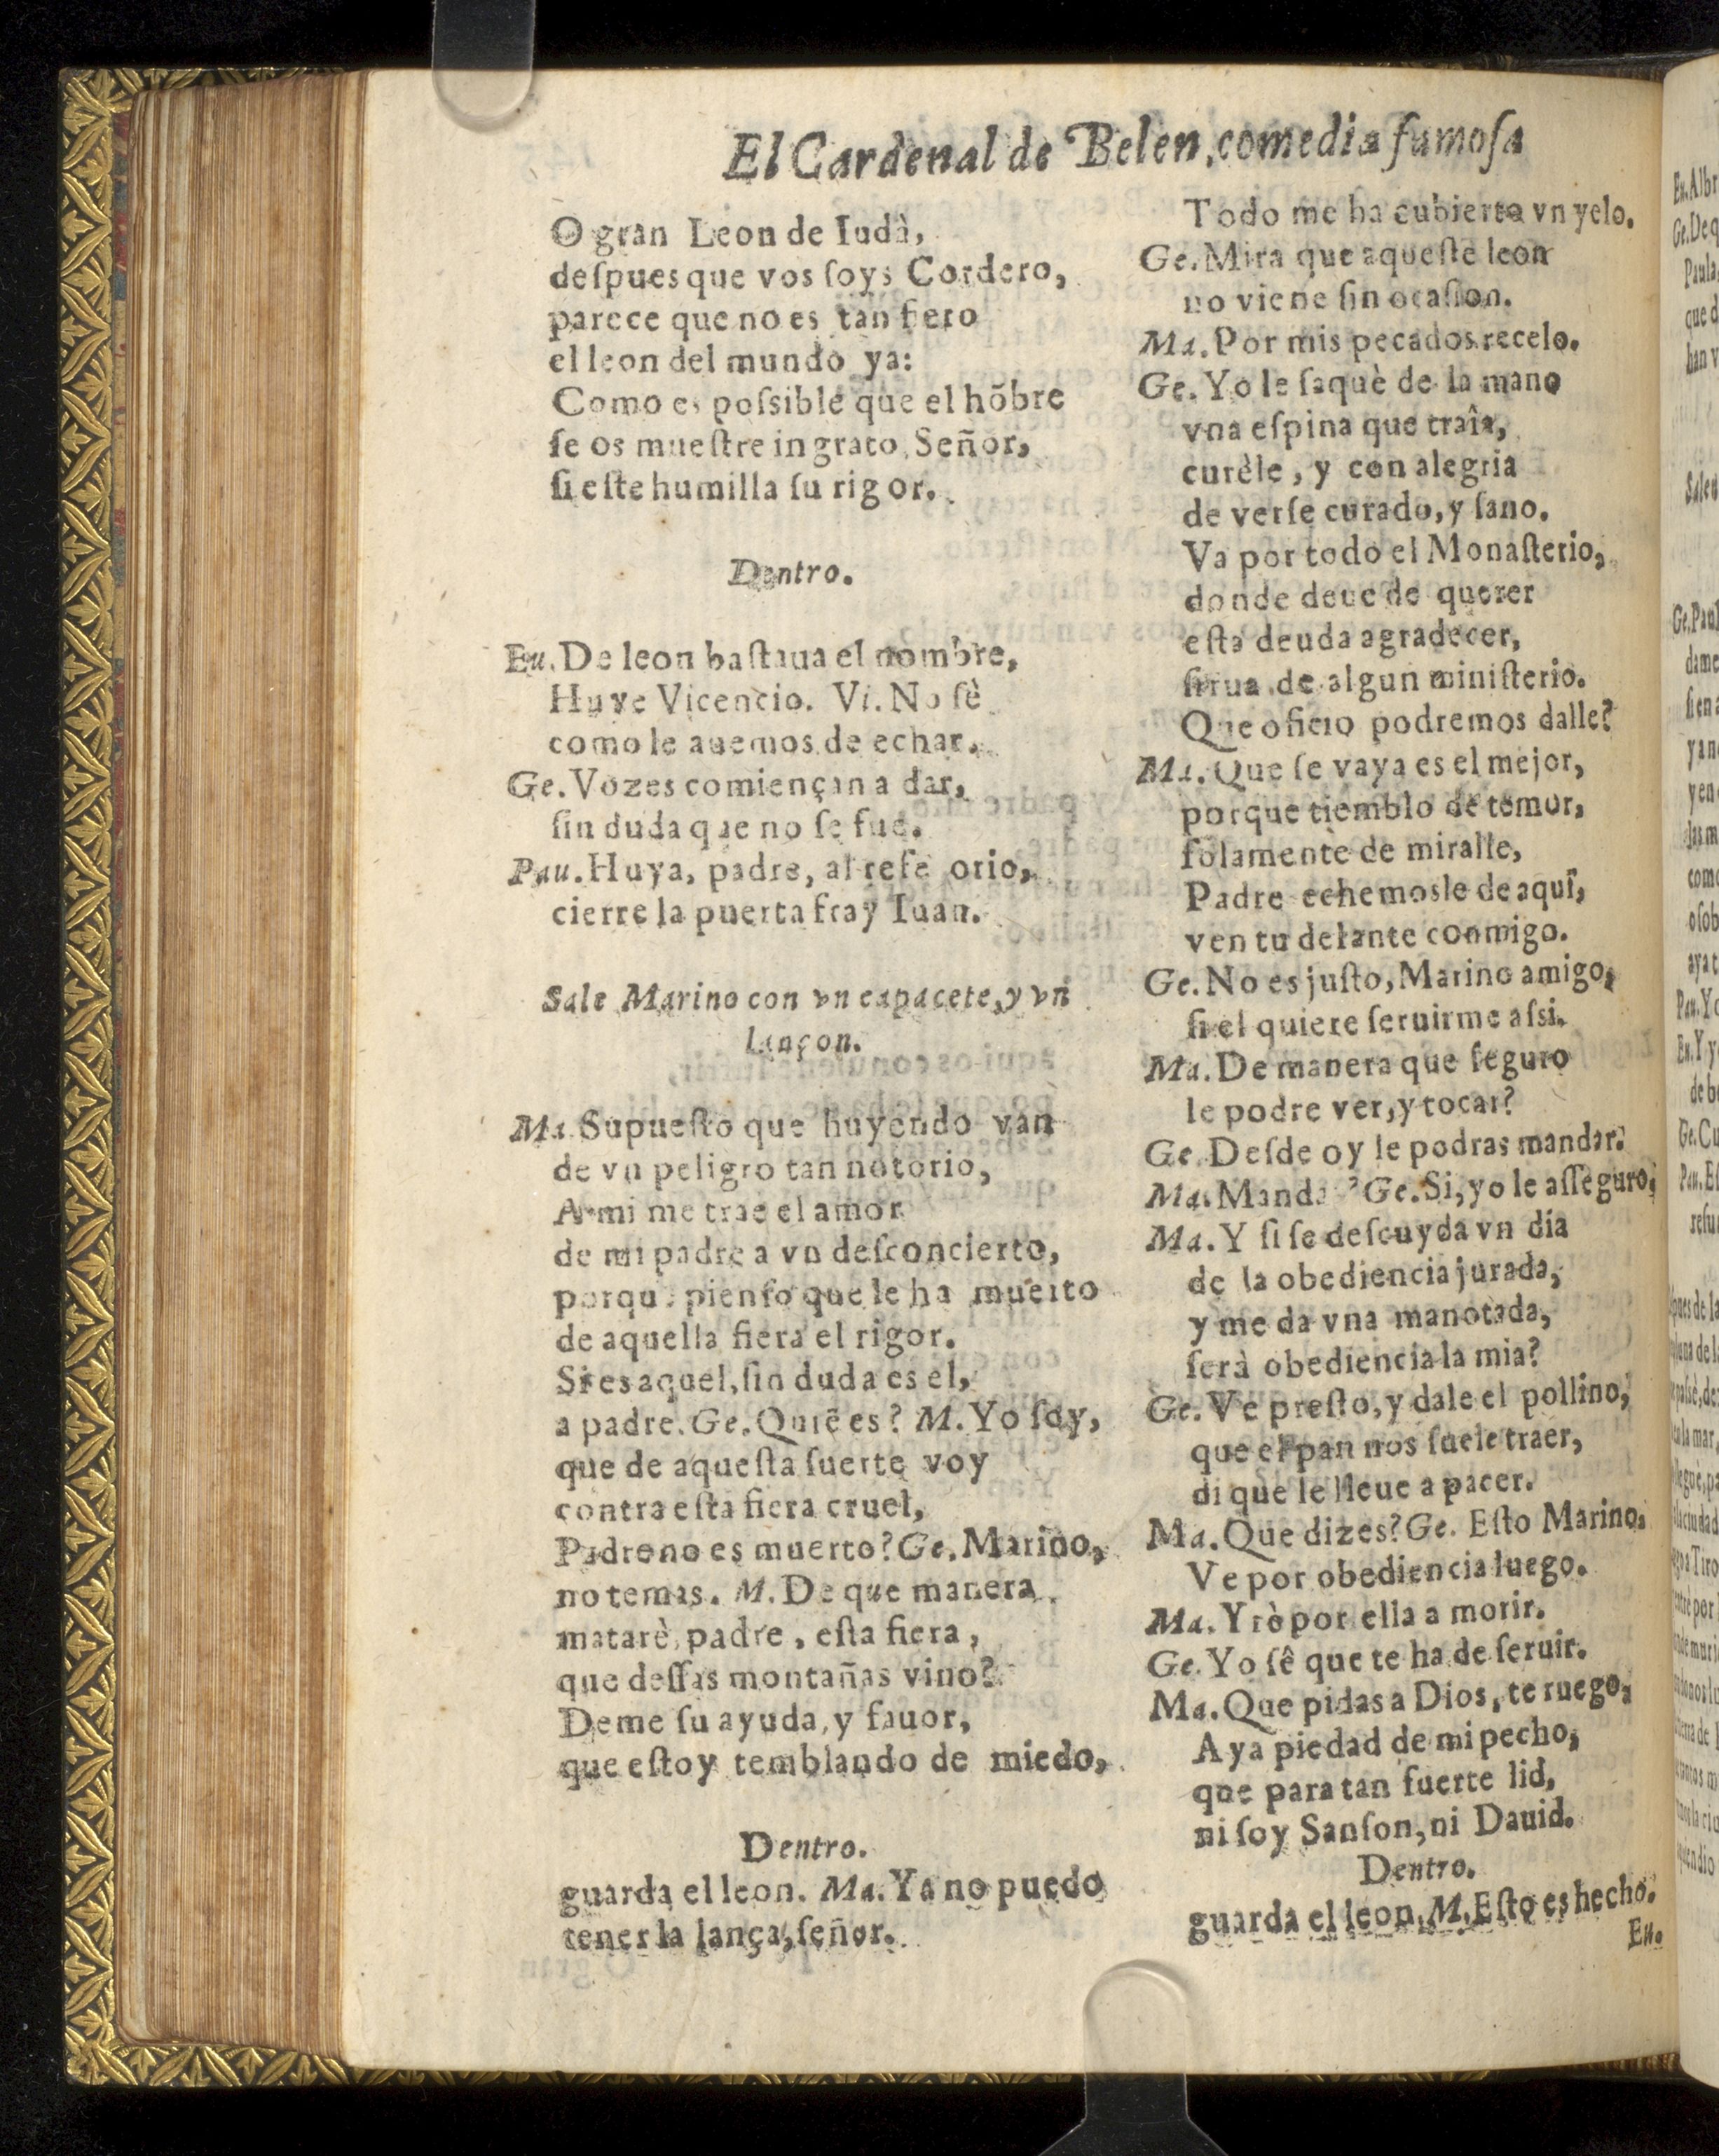 El Cardenal de Belen, comedia famosa
O gran Leon de Iudà,
despues que vos soys Cordero,
parece que no es tan fiero
el leon del mundo ya:
Como es possible que el hõbre
se os muestre ingrato Señor,
si este humilla su rigor.
Dentro.
Eu. De leon bastaua el nombre,
Huye Vicencio. Vi. No sè
como le auemos de echar.
Ge. Vozes comiençan a dar,
sin duda que no se fue.
Pau. Huya, padre, al refe orio,
cierre la puerta fray Iuan.
Sale Marino con vn capacete, y vn
lançon.
Ma. Supuesto que huyendo van
de vn peligro tan notorio,
A mi me trae el amor
de mi padre a vn desconcierto,
porque pienso que le ha muerto
de aquella fiera el rigor.
Si es aquel, sin duda es el,
a padre. Ge. Quiẽ es? M. Yo soy,
que de aquesta suerte voy
contra esta fiera cruel,
Padre no es muerto? Ge. Marino,
no temas. M. De que manera
matarè, padre, esta fiera,
que dessas montañas vino?
Deme su ayuda, y fauor,
que estoy temblando de miedo,
Dentro.
guarda el leon. Ma. Ya no puedo
tener la lança, señor.
Todo me ha cubierto vn yelo.
Ge. Mira que aqueste leon
no viene sin ocasion.
Ma. Por mis pecados recelo.
Ge. Yo le saquè de la mano
vna espina que traîa,
curèle, y con alegria
de verse curado, y sano.
Va por todo el Monasterio,
donde deue de querer
esta deuda agradecer,
sirua de algun ministerio.
Que oficio podremos dalle?
Ma. Que se vaya es el mejor,
porque tiemblo de temor,
solamente de miralle,
Padre echemosle de aquî,
ven tu delante conmigo.
Ge. No es justo, Marino amigo,
si el quiere seruirme assi.
Ma. De manera que seguro
le podre ver, y tocar?
Ge. Desde oy le podras mandar.
Ma. Mandar? Ge. Si, yo le asseguro,
Ma. Y si se descuyda vn dia
de la obediencia jurada,
y me da vna manotada,
serà obediencia la mia?
Ge. Ve presto, y dale el pollino,
que el pan nos suele traer,
di que le lleue a pacer.
Ma. Que dizes? Ge. Esto Marino,
Ve por obediencia luego.
Ma. Yrè por ella a morir.
Ge. Yo sê que te ha de seruir.
Ma. Que pidas a Dios, te ruego,
Aya piedad de mi pecho,
que para tan fuerte lid,
ni soy Sanson, ni Dauid.
Dentro.
guarda el leon. M. Esto es hecho.
Eu.